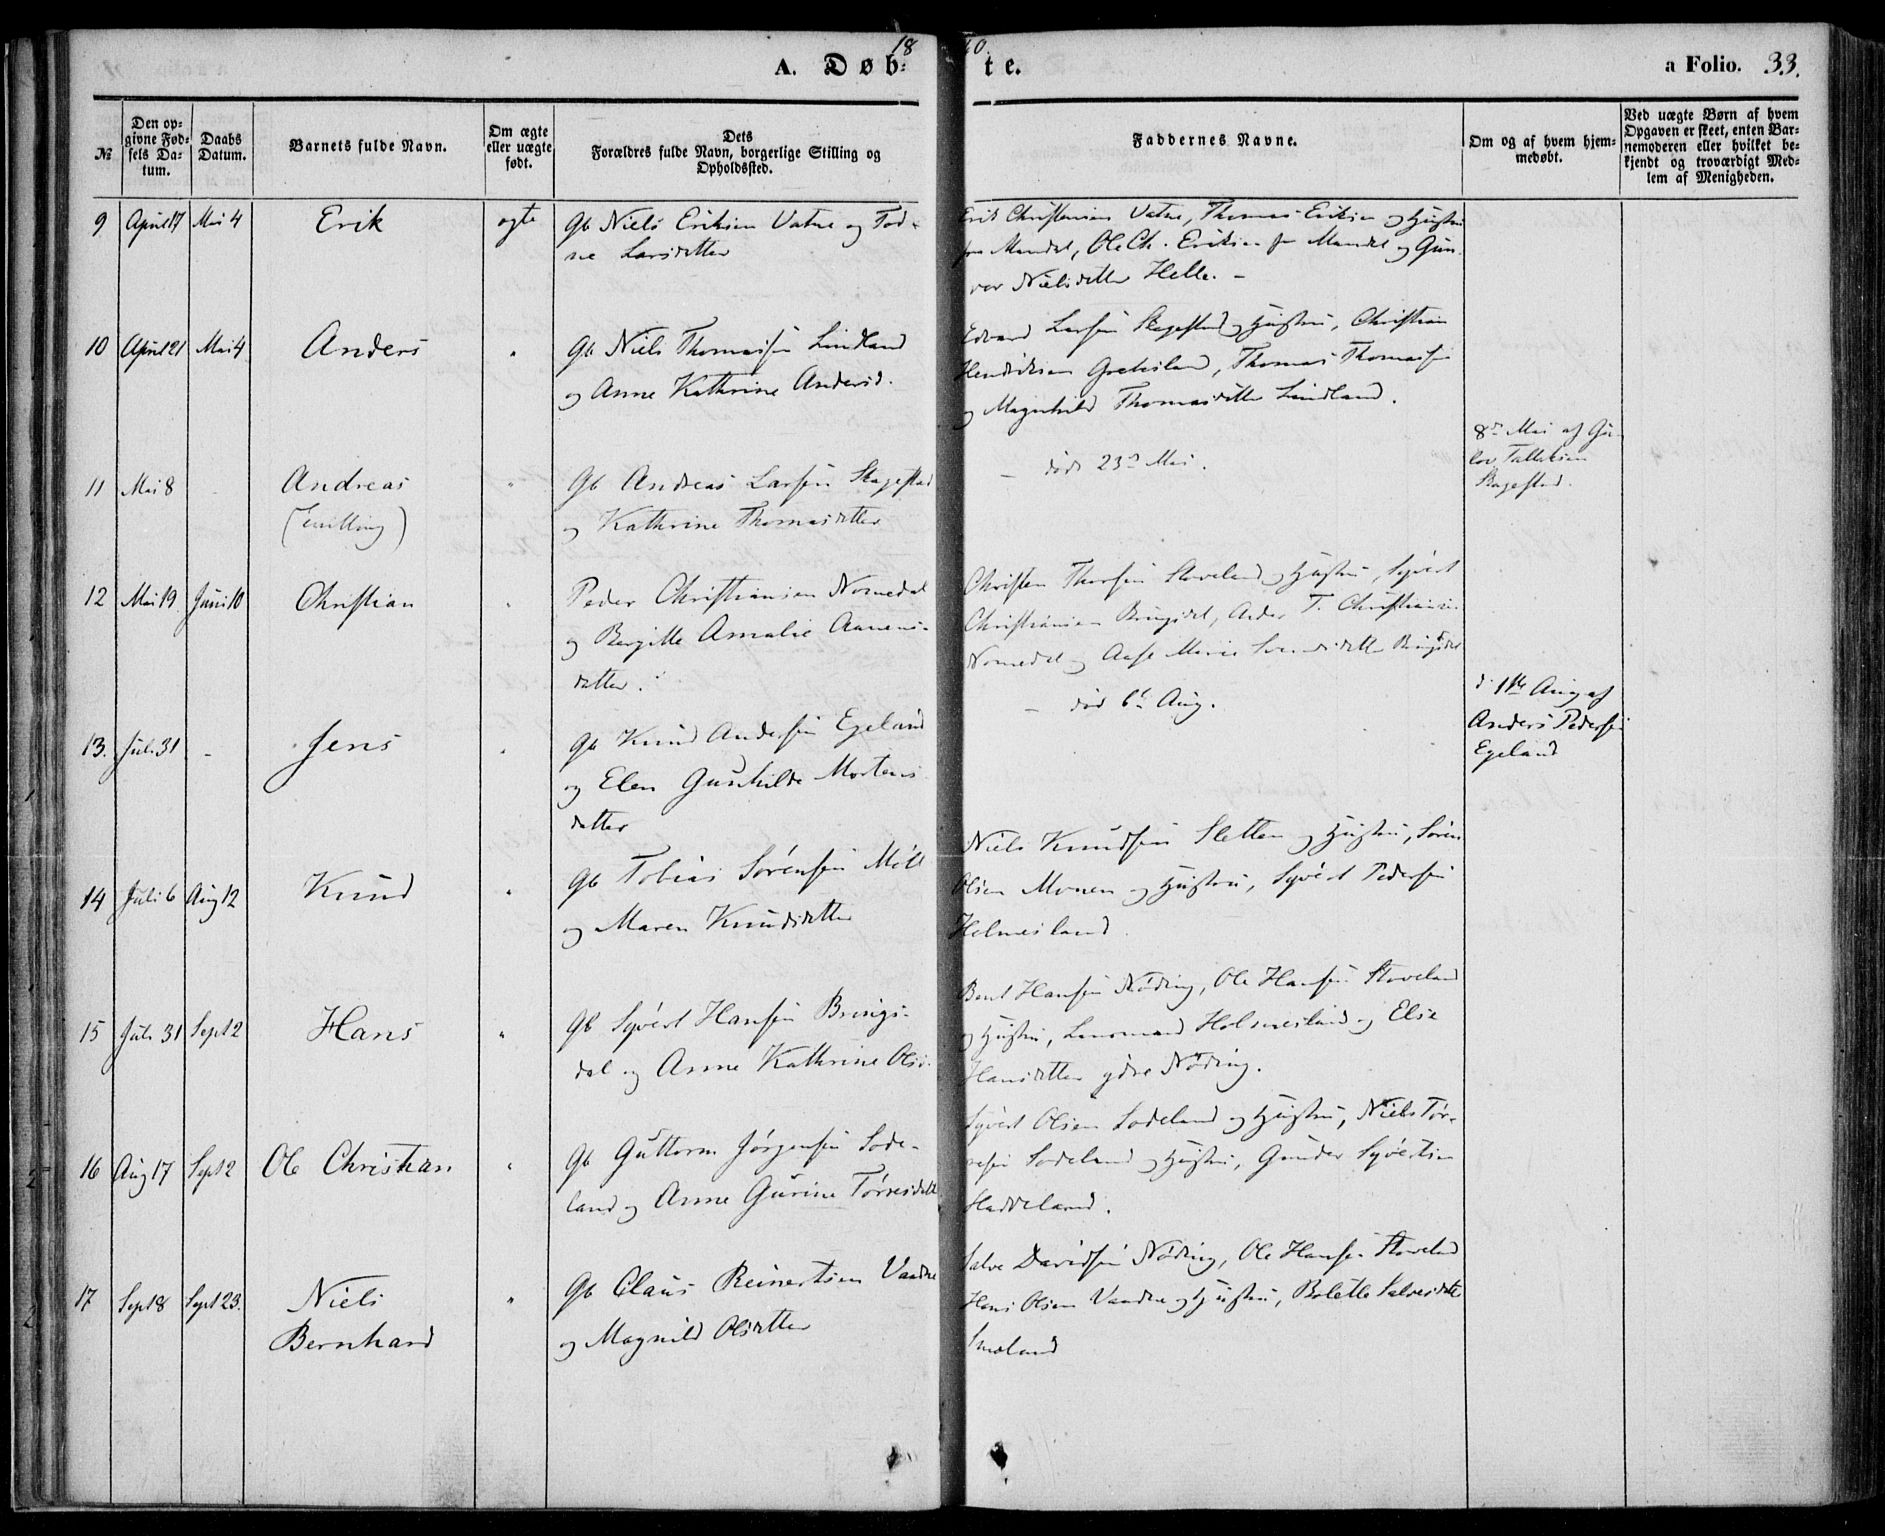 18 60.
A. Døb= te.
a Folio. 33.
№
Den op=
givne Fød=
sels Da=
tum.
Daabs
Datum.
Barnets fulde Navn.
Om ægte
eller uægte
født.
Dets
Forældres fulde Navn, borgerlige Stilling og
Opholdssted.
Faddernes Navne.
Om og af hvem hjem=
medøbt.
Ved uægte Børn af hvem
Opgaven er skeet, enten Bar=
nemoderen eller hvilket be=
kjendt og troværdigt Med=
lem af Menigheden.
9 April 17 Mai 4 Erik ægte Gb Niels Eriksen Vatne og Tod-
ne Larsdatter
Erik Christensen Vatne, Thomas Eriksen og Hustru
fra Mandal, Ole Ch. Eriksen fra Mandal og Gun-
vor Nielsdatter Helle. –
10 April 21 Mai 4 Anders " Gb Niels Thomassen Lindland
og Anne Kathrine Andersd.
Edvard Larsen Skagestad og Hustru, Christian
Hendriksen Greibsland, Thomas Thomassen
og Magnhild Thomasdatter Lindland.
11 Mai 8 – Andreas " Gb Andreas Larsen Skagestad
(Tvilling)
og Kathrine Thomasdatter
– døde 23de Mai.
8de Mai af Gu-
lov Tallaksen
Skagestad.
12 Mai 19 Juni 10 Christian " Peder Christiansen Nomedal
og Bergitte Amalie Aanens-
datter.
Christen Thorsen Stoveland og Hustru, Syvert
Christiansen Bringsdal, Anders T. Christiansen
Nomedal og Aase Marie Svendsdatter Bringsdal
13. Juli 31 – Jens " Gb Knud Andersen Egeland
og Elen Gunhilde Mortens
datter
– død 6te Aug.
d. 1ste Aug af
Anders Pedersen
Egeland
14 Juli 6 Aug 12 Knud " Gb Tobias Sørensen Møll
og Maren Knudsdatter
Niels Knudsen Sletten og Hustru, Søren
Olsen Monen og Hustru, Syvert Pedersen
Holmesland.
15 Juli 31 Sept 2 Hans " Gb Syvert Hansen Brings-
dal og Anne Kathrine Olsd.
Bent Hansen Nøding, Ole Hansen Stoveland
og Hustru, Lensmand Holmesland og Else
Hansdatter ydre Nøding.
16 Aug 17 Sept 2 Ole Christian " Gb Guttorm Jørgensen Sode-
land og Anne Gurine Tørresdatt
Syvert Olsen Sodeland og Hustru, Niels Tør-
resen Sodeland og Hustru, Gunder Syvertsen
Haddeland.
17 Sept 8 Sept 23. Niels " Gb Claus Reinertsen Vandne
Bernhard
og Magnild Olsdatter
Salve Davidsen Nøding, Ole Hansen Stoveland
Hans Olsen Vandne og Hustru, Bolette Salvesdatte